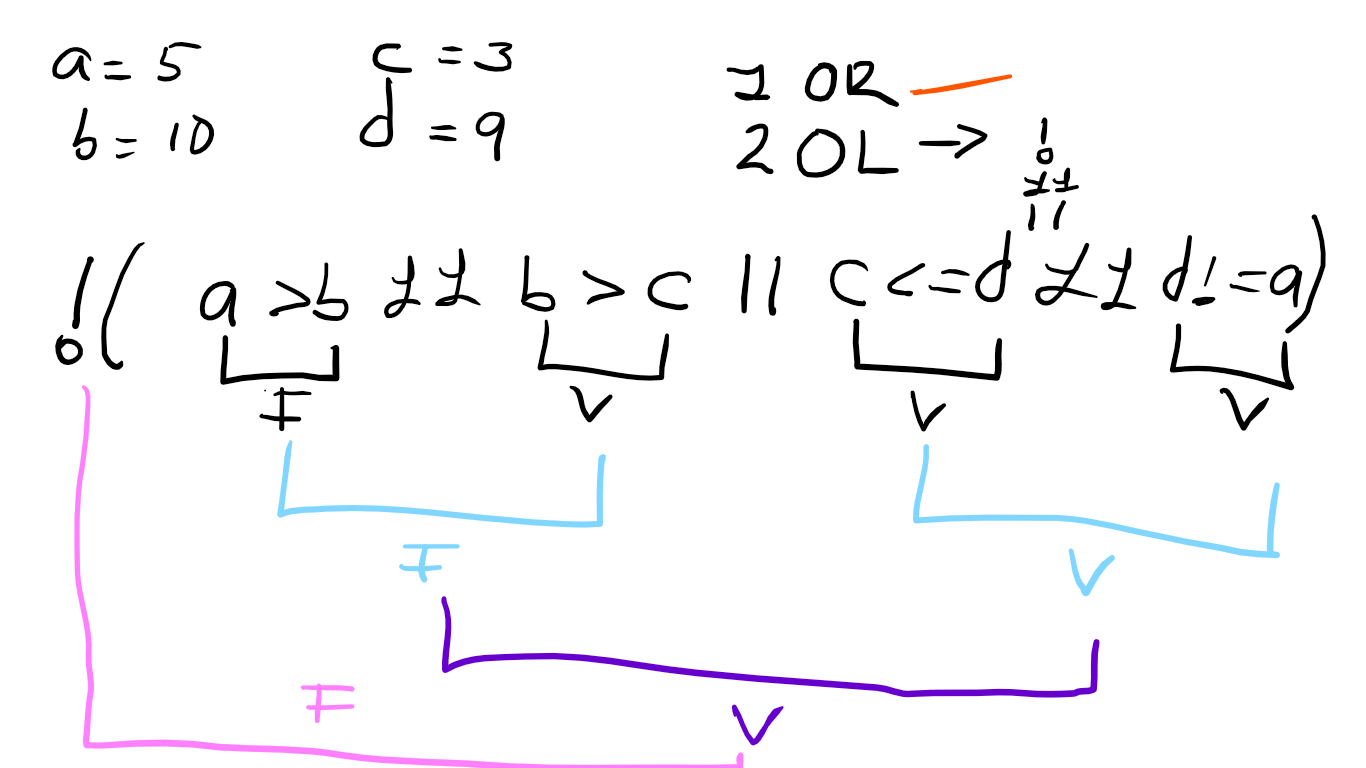 a = 5
c = 3
b = 10
d = 9
1 OR
2 OL → !
&&
||
!( a > b && b > c || c <= d && d != a )
F V V V
F V
F V